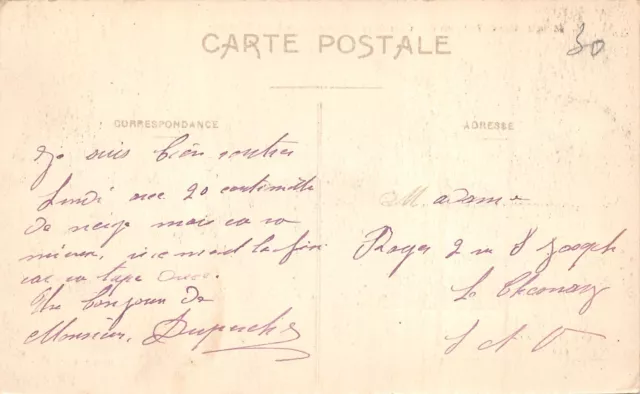 CARTE POSTALE
30
CORRESPONDANCE
ADRESSE
Je suis bien rentré
Lundi avec 20 centimètre
de neige mais ca va
mieux, la fin
car ca tape
Un bonjour de
Monsieur, Dupuche
Madame
Roger 2 r S Joseph
Le Chesnay
S et O